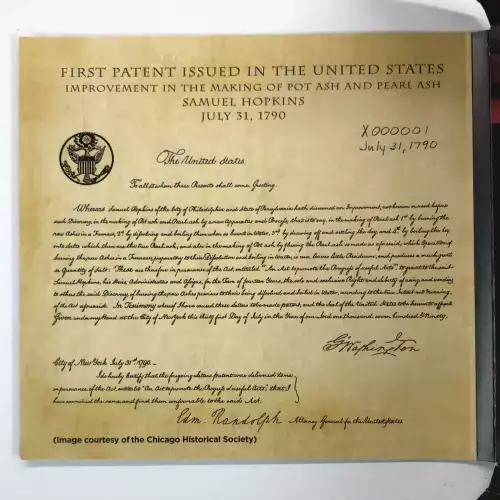 FIRST PATENT ISSUED IN THE UNITED STATES
IMPROVEMENT IN THE MAKING OF POT ASH AND PEARL ASH
SAMUEL HOPKINS
JULY 31, 1790
X000001
July 31, 1790
The United States
To all to whom these Presents shall come, Greeting.
Whereas Samuel Hopkins of the City of Philadelphia and State of Pensylvania hath discovered an Improvement, not known or used before
such Discovery, in the making of Pot ash and Pearl ash by a new Apparatus and Process; that is to say, in the making of Pearl ash 1st by burning the
raw Ashes in a Furnace, 2d by dissolving and boiling them when so burnt in Water, 3rd by drawing off and settling the Ley, and 4th by boiling the Ley
into salts which then are the true Pearl ash; and also in the making of Pot ash by fluxing the Pearl ash so made as aforesaid; which Operation of
burning the raw Ashes in a Furnace, preparatory to their Dissolution and boiling in Water, is new, leaves little Residuum; and produces a much greater
Quantity of Salt: These are therefore in pursuance of the Act, entituled "An Act to promote the Progress of useful Arts", to grant to the said
Samuel Hopkins, his Heirs, Administrators and Assigns, for the Term of fourteen Years, the sole and exclusive Right and Liberty of using and vending
to others the said Discovery of burning the raw Ashes previous to their being dissolved and boiled in Water, according to the true Intent and Meaning
of the Act aforesaid. In Testimony whereof I have caused these Letters to be made patent, and the Seal of the United States to be hereunto affixed
Given under my Hand at the City of New York this thirty first Day of July in the Year of our Lord one thousand seven hundred & Ninety.
G Washington
City of New York July 31st 1790.
I do hereby Certify that the foregoing Letters patent were delivered to me
in pursuance of the Act, entituled "An Act to promote the Progress of useful Arts"; that I
have examined the same, and find them conformable to the said Act.
Edm. Randolph Attorney General for the United States
(Image courtesy of the Chicago Historical Society)